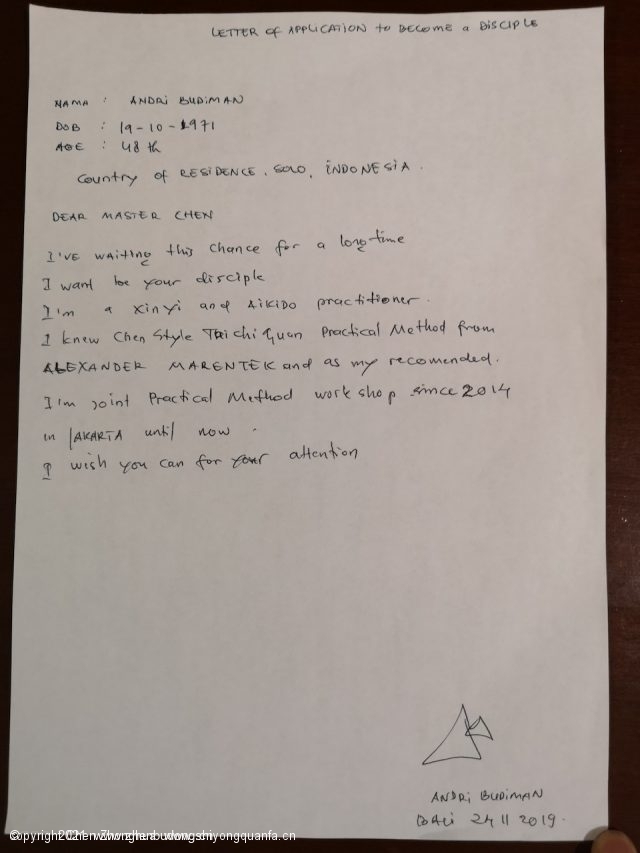 LETTER OF APPLICATION to BECOME a DISCIPLE
NAMA : ANDRI BUDIMAN
DOB : 19-10-1971
AGE : 48 th
Country of RESIDENCE. SOLO, INDONESIA.
DEAR MASTER CHEN
I'VE waiting this chance for a long time
I want be your disciple
I'm a xinyi and AiKiDO practitioner.
I knew Chen Style Taichi Quan Practical Method from
ALEXANDER MARENTEK and as my recomended.
I'm joint Practical Method work shop since 2014
in JAKARTA until now.
I wish you can for your attention
ANDRI BUDIMAN
BALI 24 11 2019.